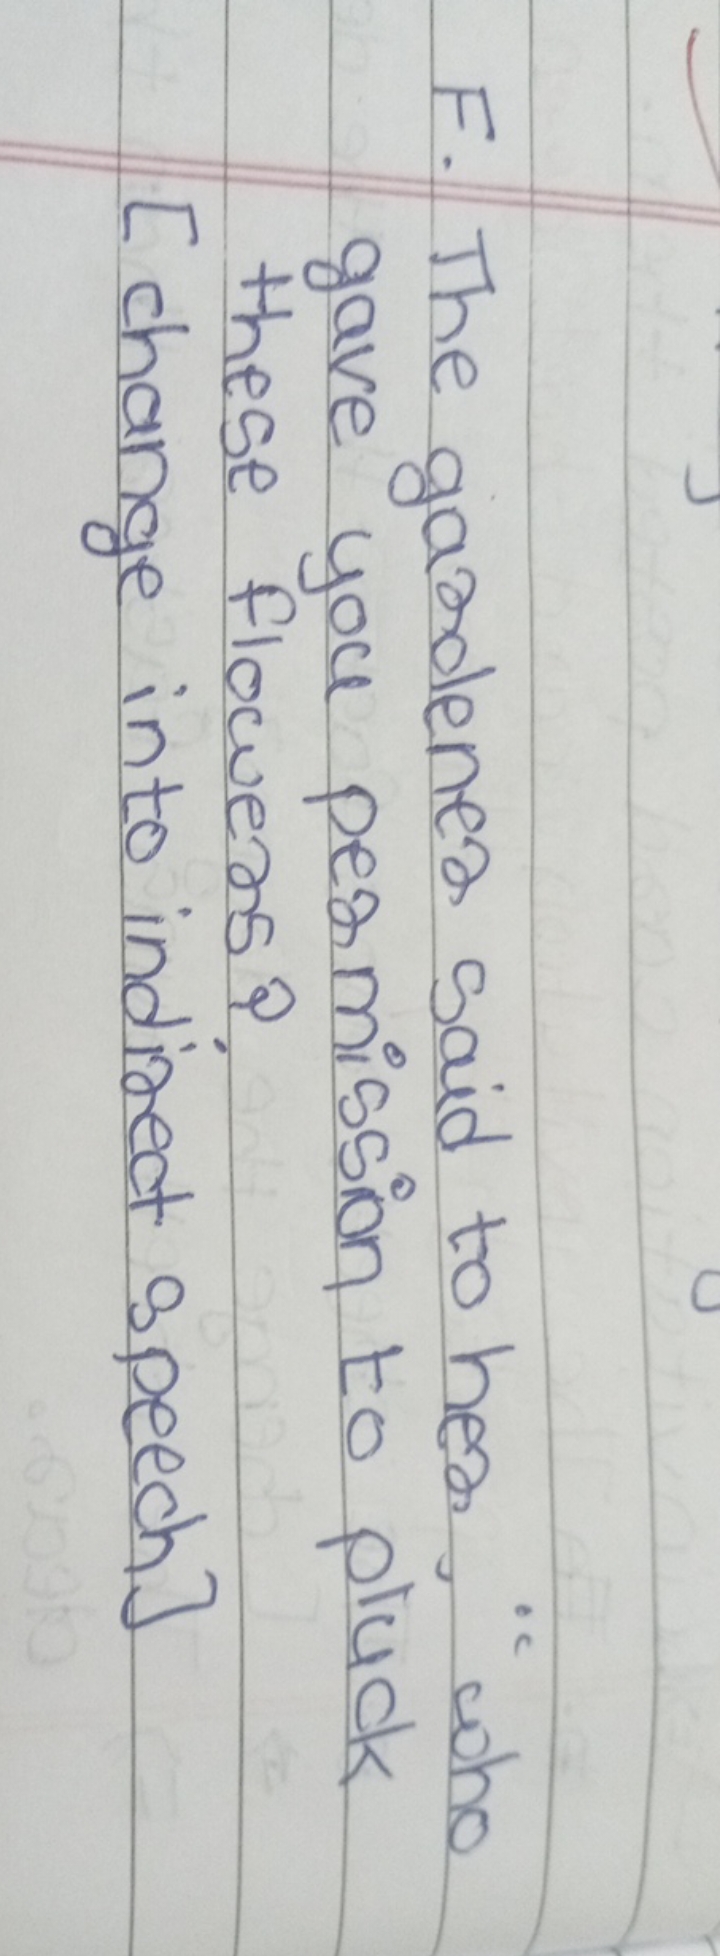 F. The gardener said to her, "who
gave you permission to pluck
these flowers?
[change into indirect speech]